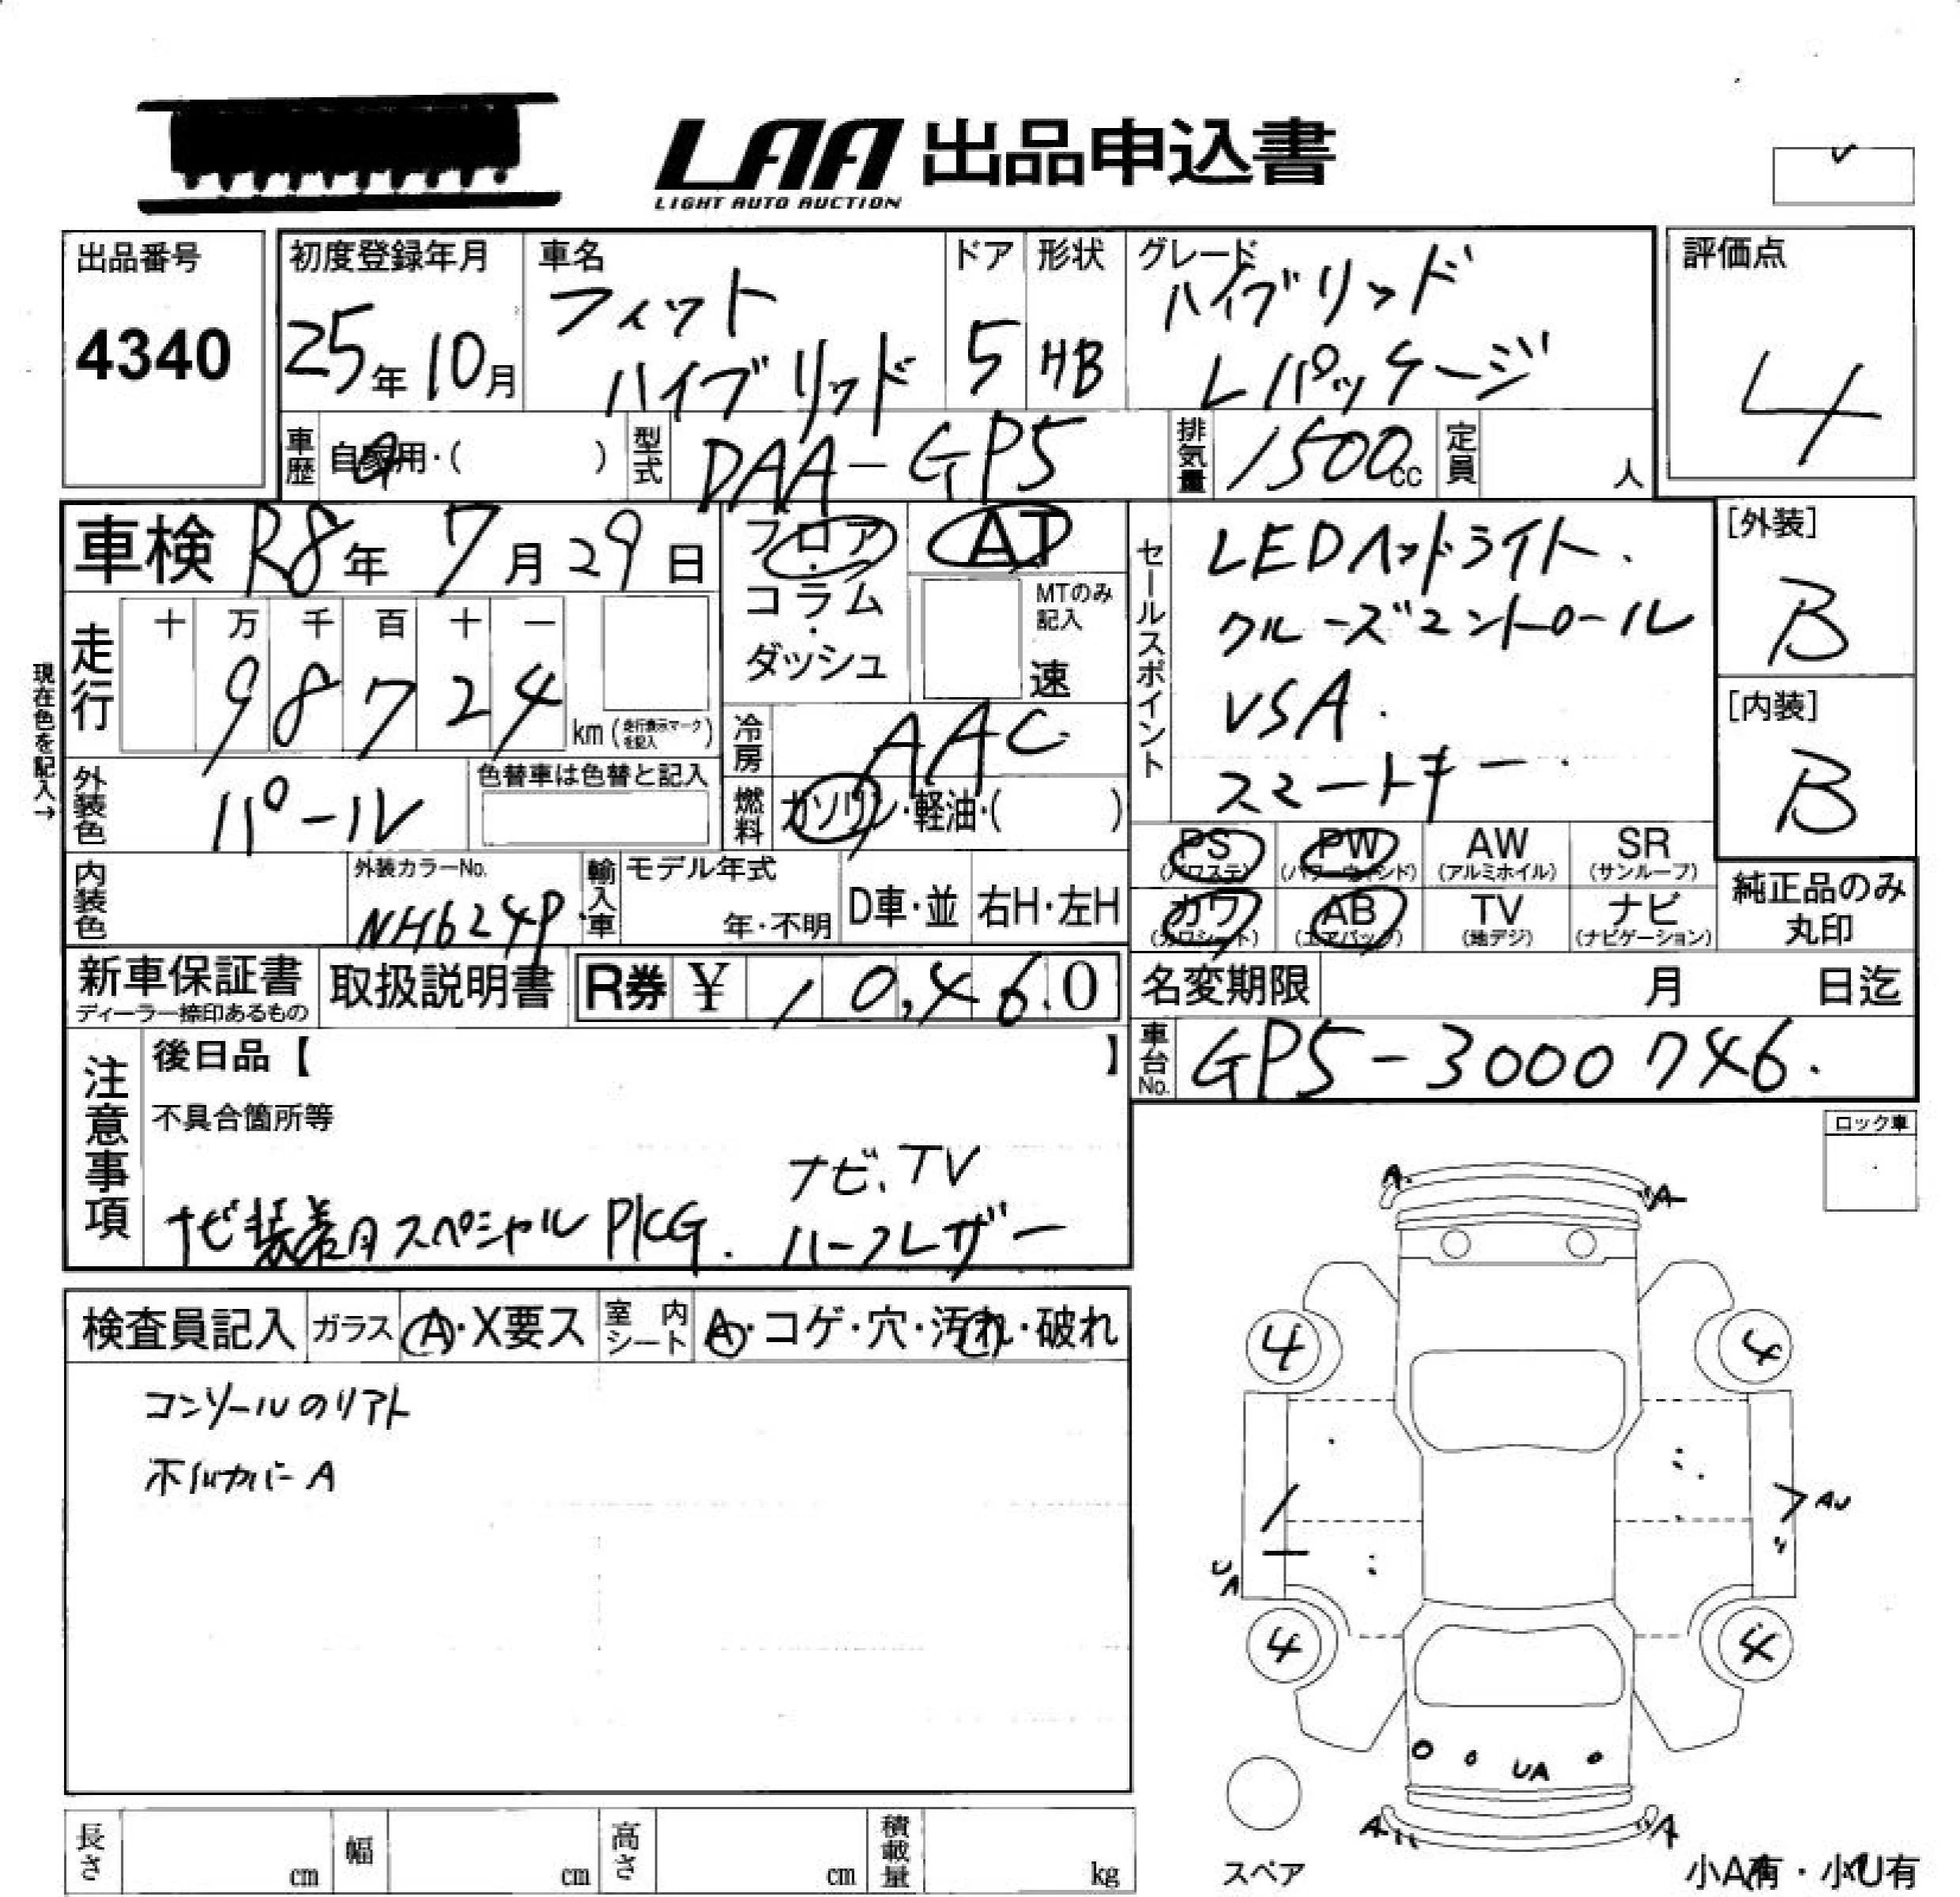 LAA 出品申込書
LIGHT AUTO AUCTION
出品番号
4340
初度登録年月
25年10月
車名
フィット
ハイブリッド
ドア
5
形状
HB
グレード
ハイブリッド
Lパッケージ
評価点
4
車歴
自家用・( )
型式
DAA-GP5
排気量
1500cc
定員
人
車検 R8年 7月29日
フロア・コラム・ダッシュ
AT
MTのみ記入
速
セールスポイント
LEDヘッドライト.
クルーズコントロール
VSA.
スマートキー.
[外装]
B
[内装]
B
現在色を記入→
走行
十 万 千 百 十 一
9 8 7 2 4
km(走行表示マークを記入)
冷房
AAC
燃料
ガソリン・軽油・( )
外装色
パール
色替車は色替と記入
内装色
外装カラーNo.
NH624P.
輸入車
モデル年式
年・不明
D車・並
右H・左H
PS
(パワステ)
PW
(パワーウィンド)
AW
(アルミホイル)
SR
(サンルーフ)
カワ
(カワシート)
AB
(エアバック)
TV
(地デジ)
ナビ
(ナビゲーション)
純正品のみ
丸印
新車保証書
ディーラー捺印あるもの
取扱説明書
R券 ¥ 10,460
名変期限 月 日迄
車台No.
GP5-3000746.
注意事項
後日品【 】
不具合箇所等
ナビ、TV
ナビ装着用スペシャルPKG. ハーフレザー
ロック車
検査員記入
ガラス
A・X要ス
室内シート
A・コゲ・穴・汚れ・破れ
コンソールのリアト
ホイルカバーA
A A
4 4
AU
UA
4 4
UA
A A
スペア
小A有・小U有
長さ cm
幅 cm
高さ cm
積載量 kg